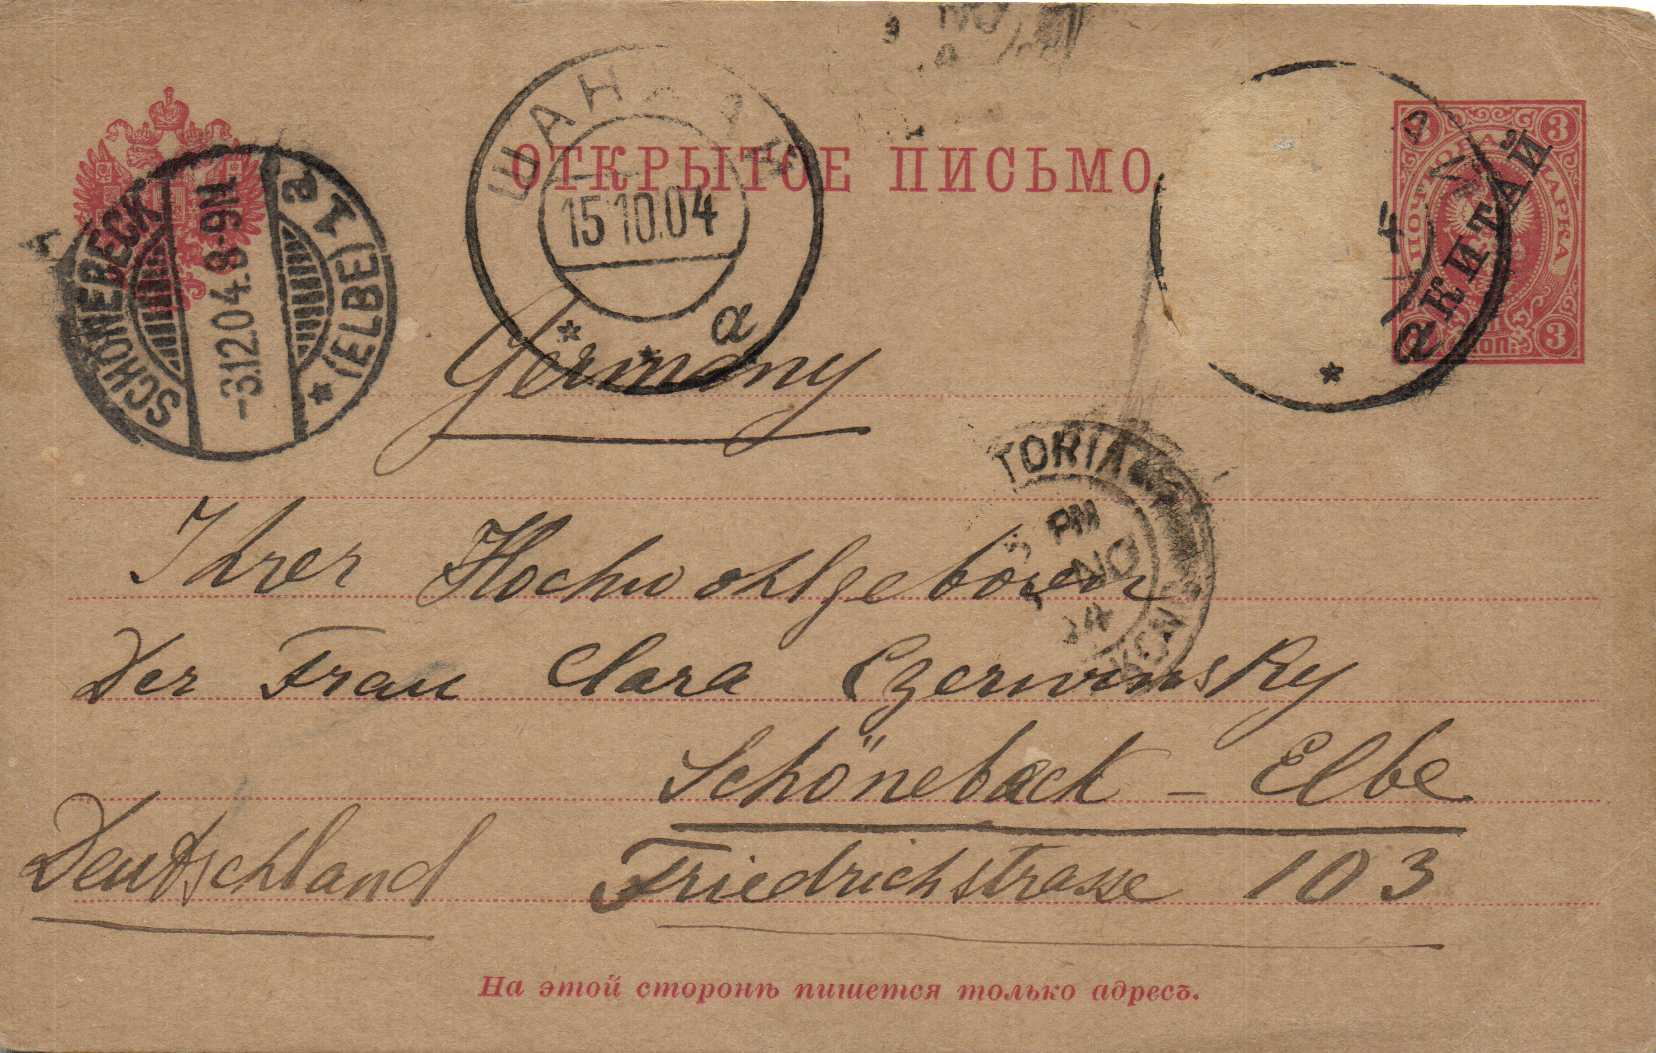 ОТКРЫТОЕ ПИСЬМО.
3 3
ПОЧТОВАЯ МАРКА
КИТАЙ
3 КОП. 3
ШАНХАЙ
15 10.04
a
SCHÖNEBECK
(ELBE)
a 1
-3.12.04.8-9N.
4
a
TORIA
PM
NO
KONG
Germany
Ihrer Hochwohlgeboren
Der Frau Clara Czerwinsky
Schönebeck - Elbe
Deutschland Friedrichstrasse 103
На этой сторонѣ пишется только адресъ.